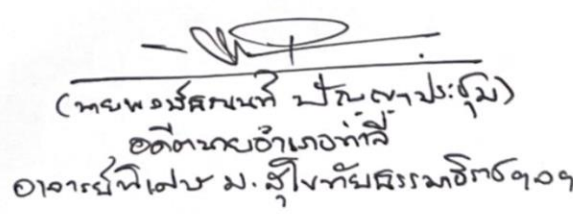 (นายพงษ์ธนนท์ ปัญญาประชุม)
อดีตนายอำเภอท่าลี่
อาจารย์พิเศษ ม.สุโขทัยธรรมาธิราช